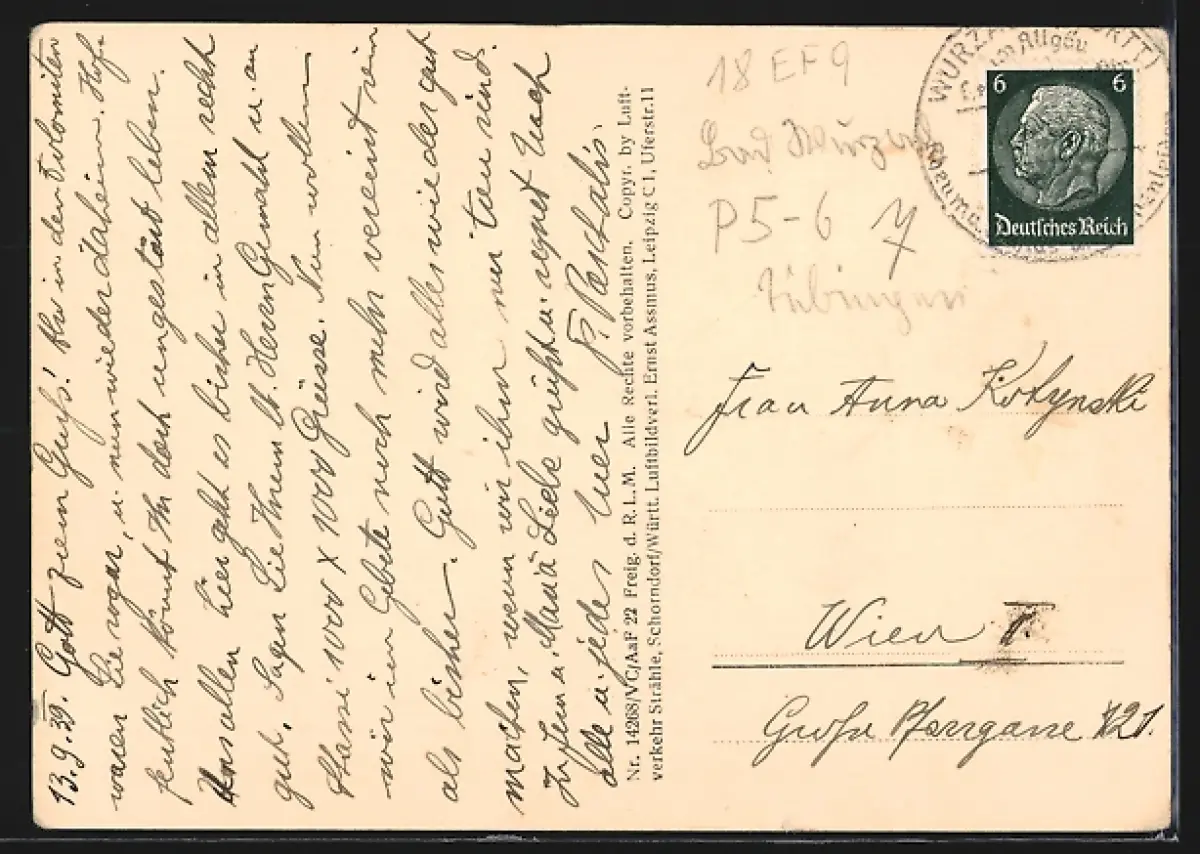 13.9.39. Gott zum Gruß! Also in den Dolomiten
waren Sie sogar, u. nun wieder daheim. Hof-
fentlich könnt Ihr doch ungestört leben.
Uns allen hier geht es bisher in allem recht
gut. Sagen Sie Ihrem lb. Herrn Gemahl u. an
Stansi 1000 X 1000 Grüsse. Nun wollen
wir im Gebete noch mehr vereint sein
als bisher. Gott wird alles wieder gut
machen, wenn wir ihm nur treu sind.
In Jesu u. Mariä Liebe grüßt u. segnet Euch
alle u. jedes Euer P. Paschalis
Nr. 14268/VC/AaF 22 Freig. d. R.L.M. Alle Rechte vorbehalten. Copyr. by Luft-
verkehr Strähle, Schorndorf/Württ. Luftbildverl. Ernst Assmus, Leipzig C1, Uferstr. 11
18 EF 9
Bad Wurzach
P 5-6
Tübingen
im Allgäu
6 6
Deutsches Reich
Frau Anna Kotynski
Wien
Große Pfarrgasse